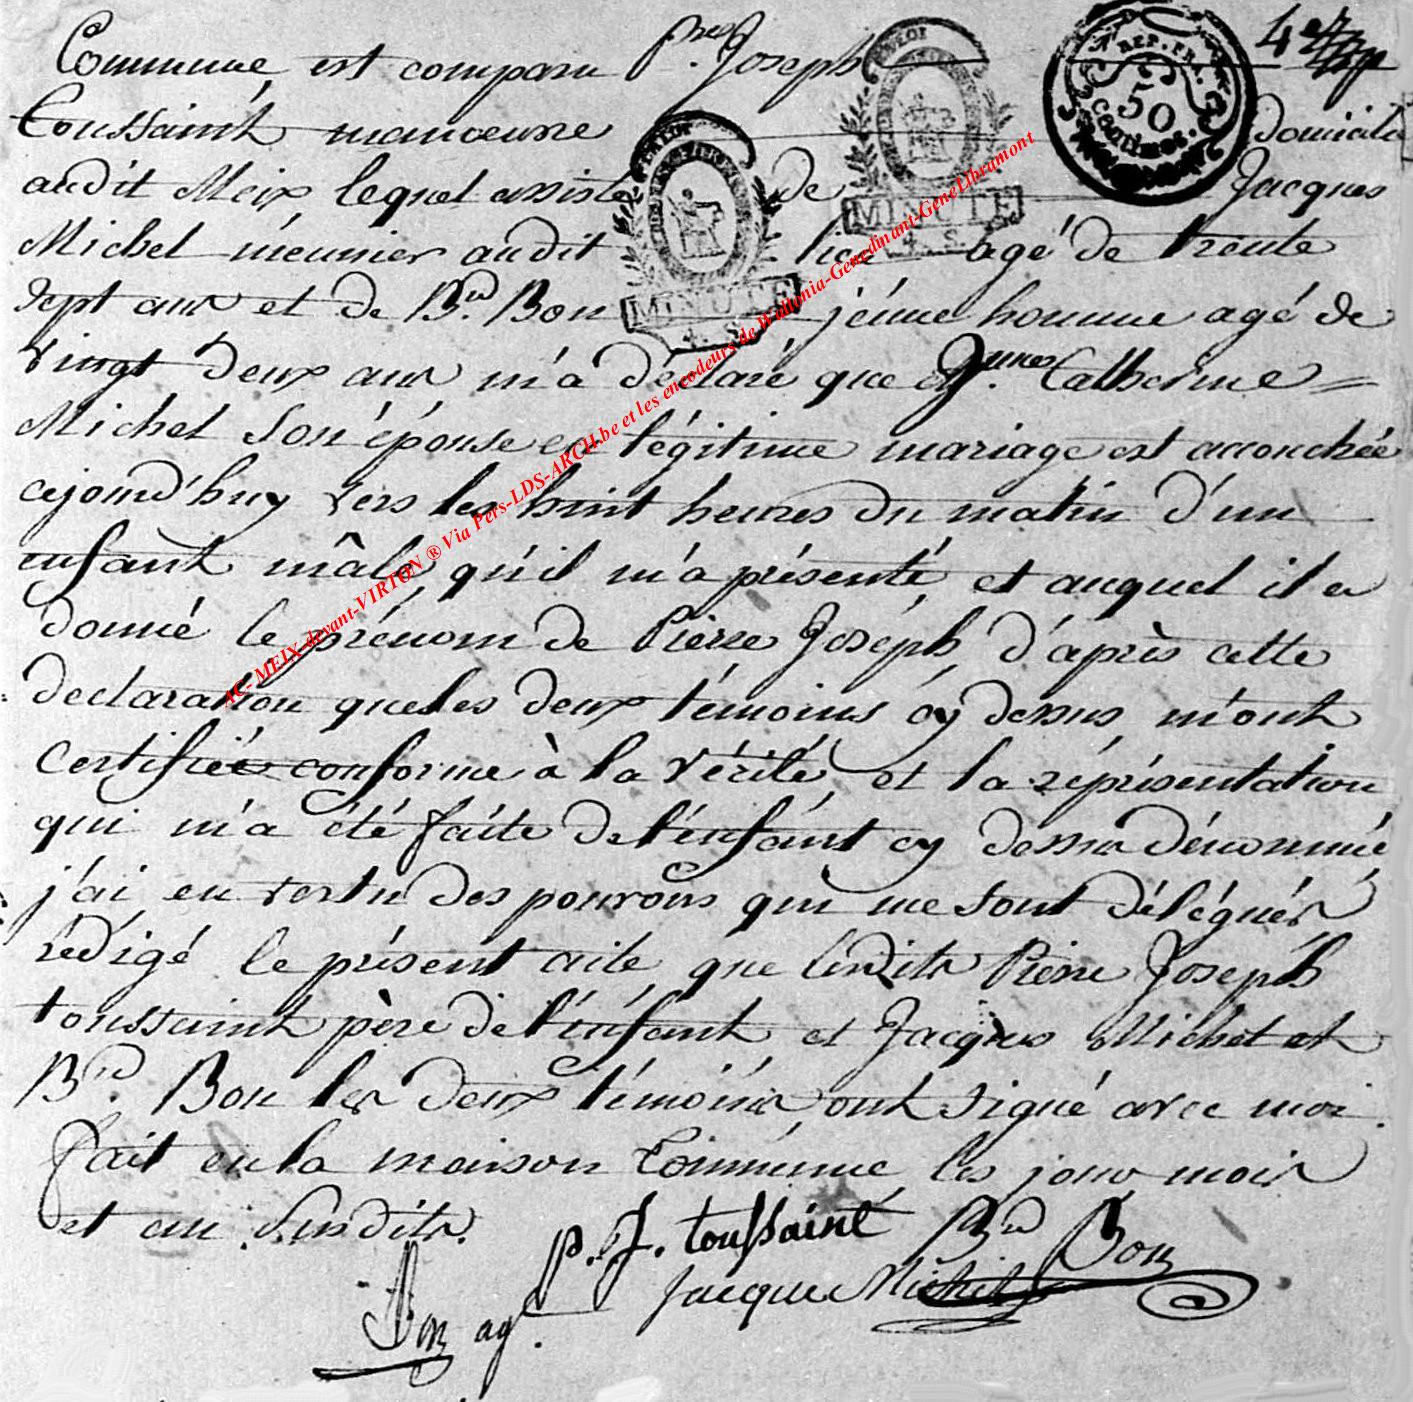 Commune est comparu P.re Joseph 4e
Toussaint manoeuvre domicilié
audit Meix lequel assisté de Jacques
Michel meunier audit lieu agé de trente
sept ans et de B.rd Bon jeune homme agé de
vingt deux ans m'a déclaré que Catherine =
Michel Son épouse en légitime mariage est accouchée
cejourd'huy vers les huit heures du matin d'un
enfant mâle, qu'il m'a présenté, et auquel il a
donné le prénom de Pierre Joseph, d'après cette
declaration que les deux témoins cy dessus m'ont
Certifiée conforme à la vérité, et la représentation
qui m'a été faite de l'enfant cy dessus dénommé
j'ai en vertu des pouvoirs qui me sont délégués
rédigé le présent acte, que lesdits Pierre Joseph
toussaint père de l'enfant et Jacques Michel et
B.rd Bon les deux témoins, ont signé avec moi.
fait en la maison Commune les jour mois
et an Susdits.
p. J. toussaint B.rd Bon
Jacque Michel
Bon ag.t
REP. FRA.
50
centimes.
MINUTE
4. S.
MINUTE
4. S.
AC- MEIX-devant-VIRTON ® Via Pers-LDS-ARCH.be et les encodeurs de Wallonia-Genedinant-GeneLibramont